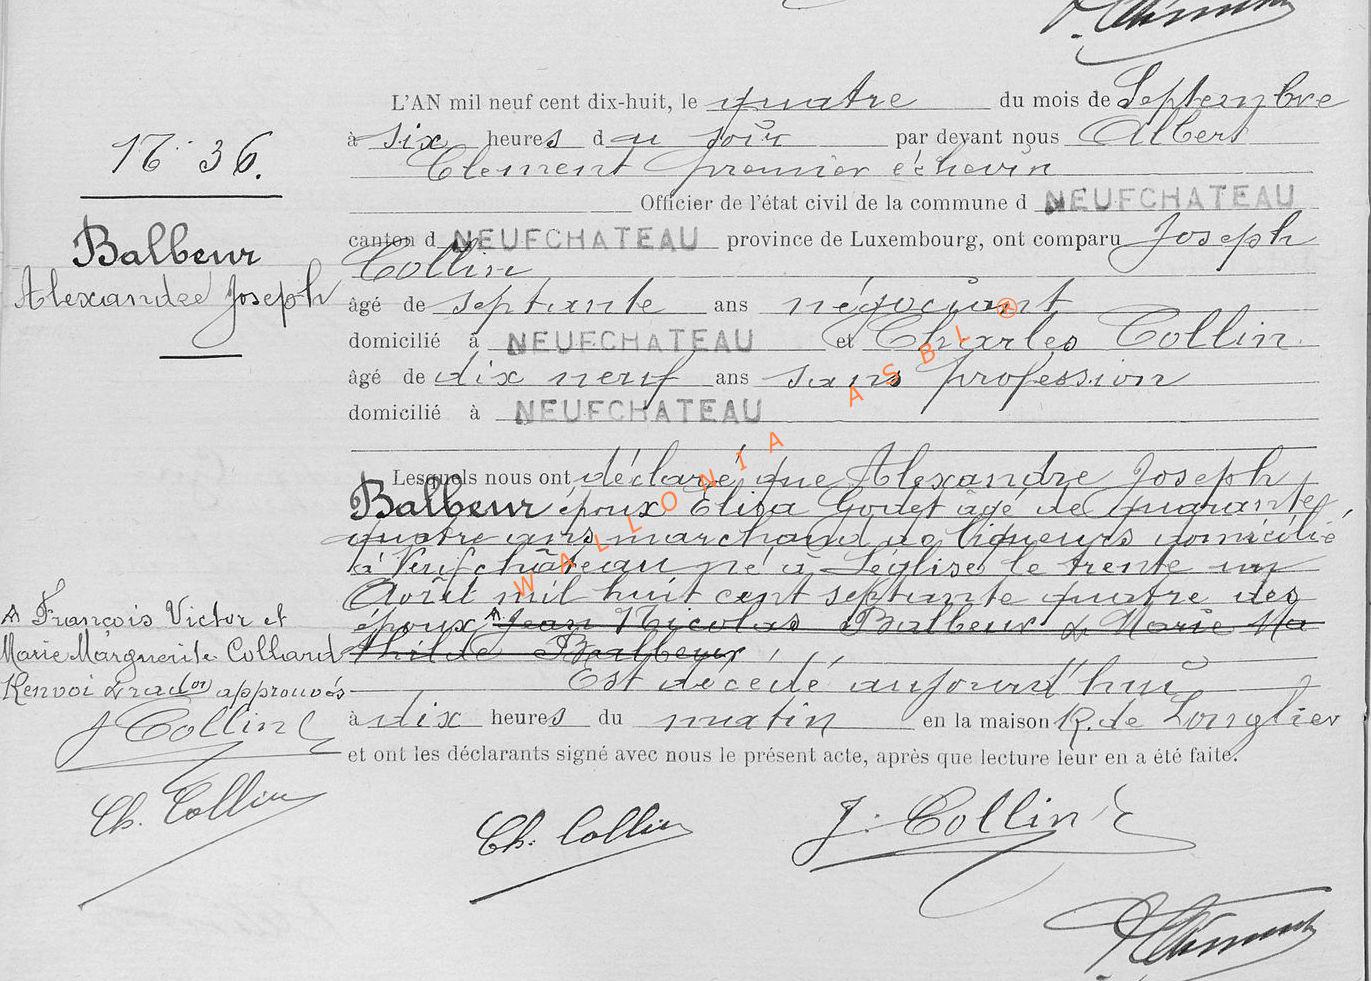 L'AN mil neuf cent dix-huit, le quatre du mois de Septembre
à six heures du soir par devant nous Albert
Clement premier échevin
Officier de l'état civil de la commune d NEUFCHATEAU
canton d NEUFCHATEAU province de Luxembourg, ont comparu Joseph
Collin
âgé de septante ans négociant
domicilié à NEUFCHATEAU et Charles Collin
âgé de dix neuf ans sans profession
domicilié à NEUFCHATEAU
Lesquels nous ont déclaré que Alexandre Joseph
Balbeur époux Elisa Godet âgé de quarante
quatre ans marchand de liqueurs domicilié
à Neufchâteau né à Léglise le trente un
Août mil huit cent septante quatre des
époux Jean Nicolas Balbeur & Marie Ma
thilde Balbeur
Est décédé aujourd'hui
à dix heures du matin en la maison R. de Longlier
et ont les déclarants signé avec nous le présent acte, après que lecture leur en a été faite.
Ch. Collin J. Collin
A. Clément
N° 36.
Balbeur
Alexandre Joseph
François Victor et
Marie Marguerite Collard
Renvoi & radon approuvés
J Collin
Ch. Collin
WALLONIA ASBL ®